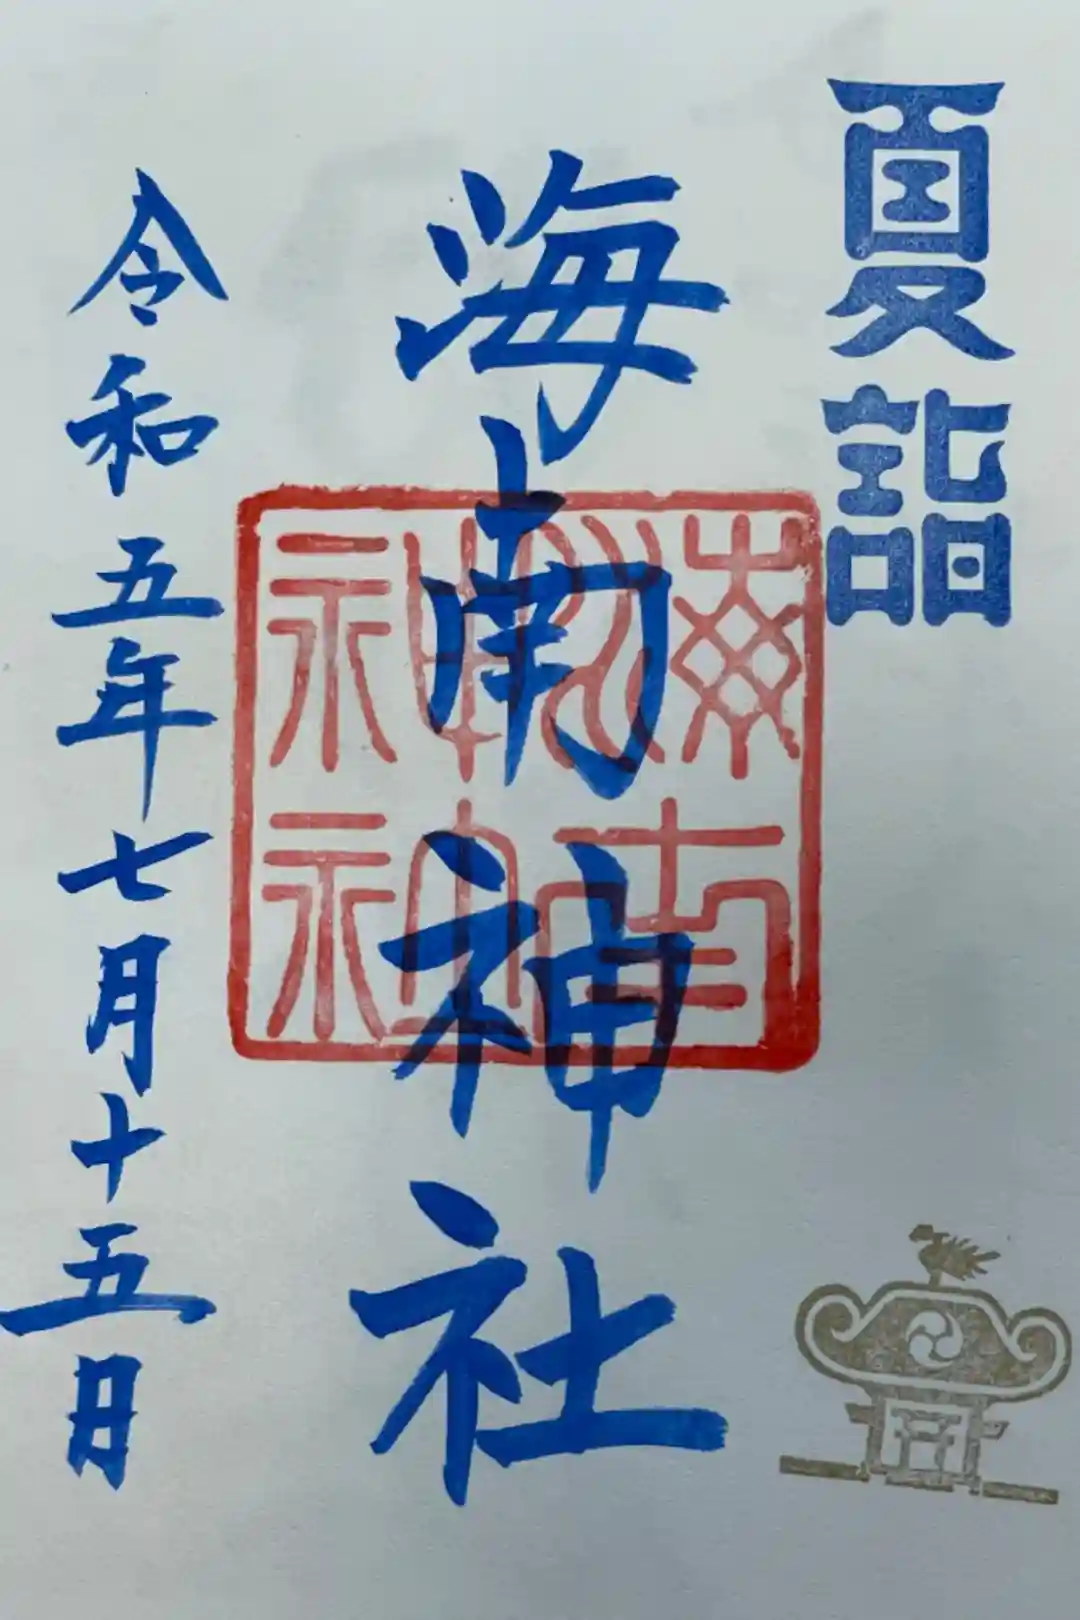 夏詣
海南神社
海南
神社
令和五年七月十五日